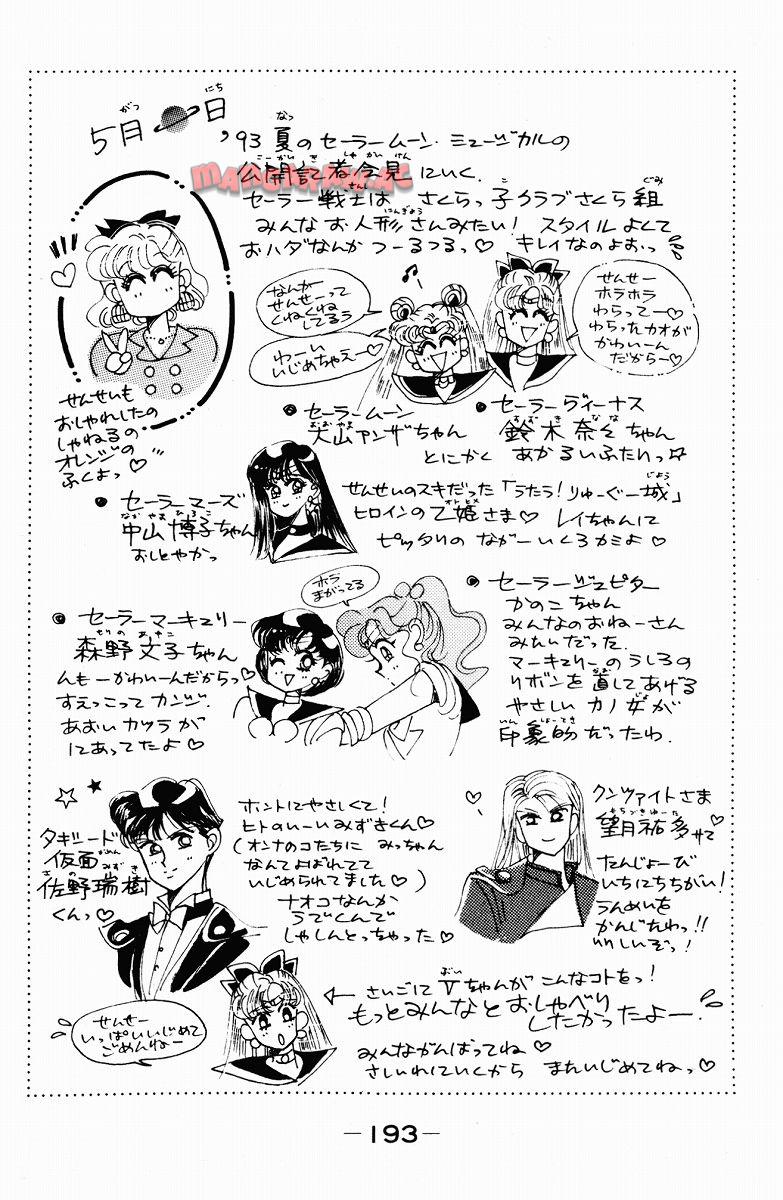 5月🪐日
'93 夏のセーラームーン・ミュージカルの
公開記者会見にいく。
MANGAPARK.AC
セーラー戦士は さくらっ子クラブさくら組
みんなお人形さんみたい! スタイルよくて
おハダなんかつーるつるっ♡ キレイなのよおっ
なんか
せんせーって
くねくね
してるぅ
わーい
いじめちゃえー♡
せんせー
ホラホラ
わらってー♡
わらったカオが
かわいーん
だからー♡
せんせいも
おしゃれしたの
しゃねるの
オレンジの
ふくよっ♡
●セーラームーン
大山アンザちゃん
●セーラーヴィーナス
鈴木奈々ちゃん
とにかく あかるいふたりっ☆
●セーラーマーズ
中山博子ちゃん
おしとやかっ
せんせいのスキだった「うたう!りゅーぐー城」
ヒロインの乙姫さま♡ レイちゃんに
ピッタリの ながーいくろカミよ♡
●セーラーマーキュリー
森野文子ちゃん
んもーかわいーんだからっ♡
すえっこってカンジ。
あおいカツラが
にあってたよ♡
ホラ
まがってる
●セーラージュピター
かのこちゃん
みんなのおねーさん
みたいだった。
マーキュリーのうしろの
リボンを直してあげる
やさしいカノ女が
印象的だったわ。
タキシード
仮面
佐野瑞樹
くんっ♡
ホントにやさしくて!
ヒトのいーいみずきくん♡
(オンナのコたちに みっちゃん
なんてよばれてて
いじめられてました♡)
ナオコなんか
うでくんで
しゃしんとっちゃった♡
クンツァイトさま
望月祐多サマ
たんじょーび
いちにちちがい!
うんめいを
かんじたわっ!!
りりしいぞっ!
せんせー
いっぱいいじめて
ごめんねー
←さいごにVちゃんが こんなコトをっ!
もっとみんなとおしゃべり
したかったよー。
みんながんばってね♡
さしいれにいくから またいじめてねっ♡
—193—